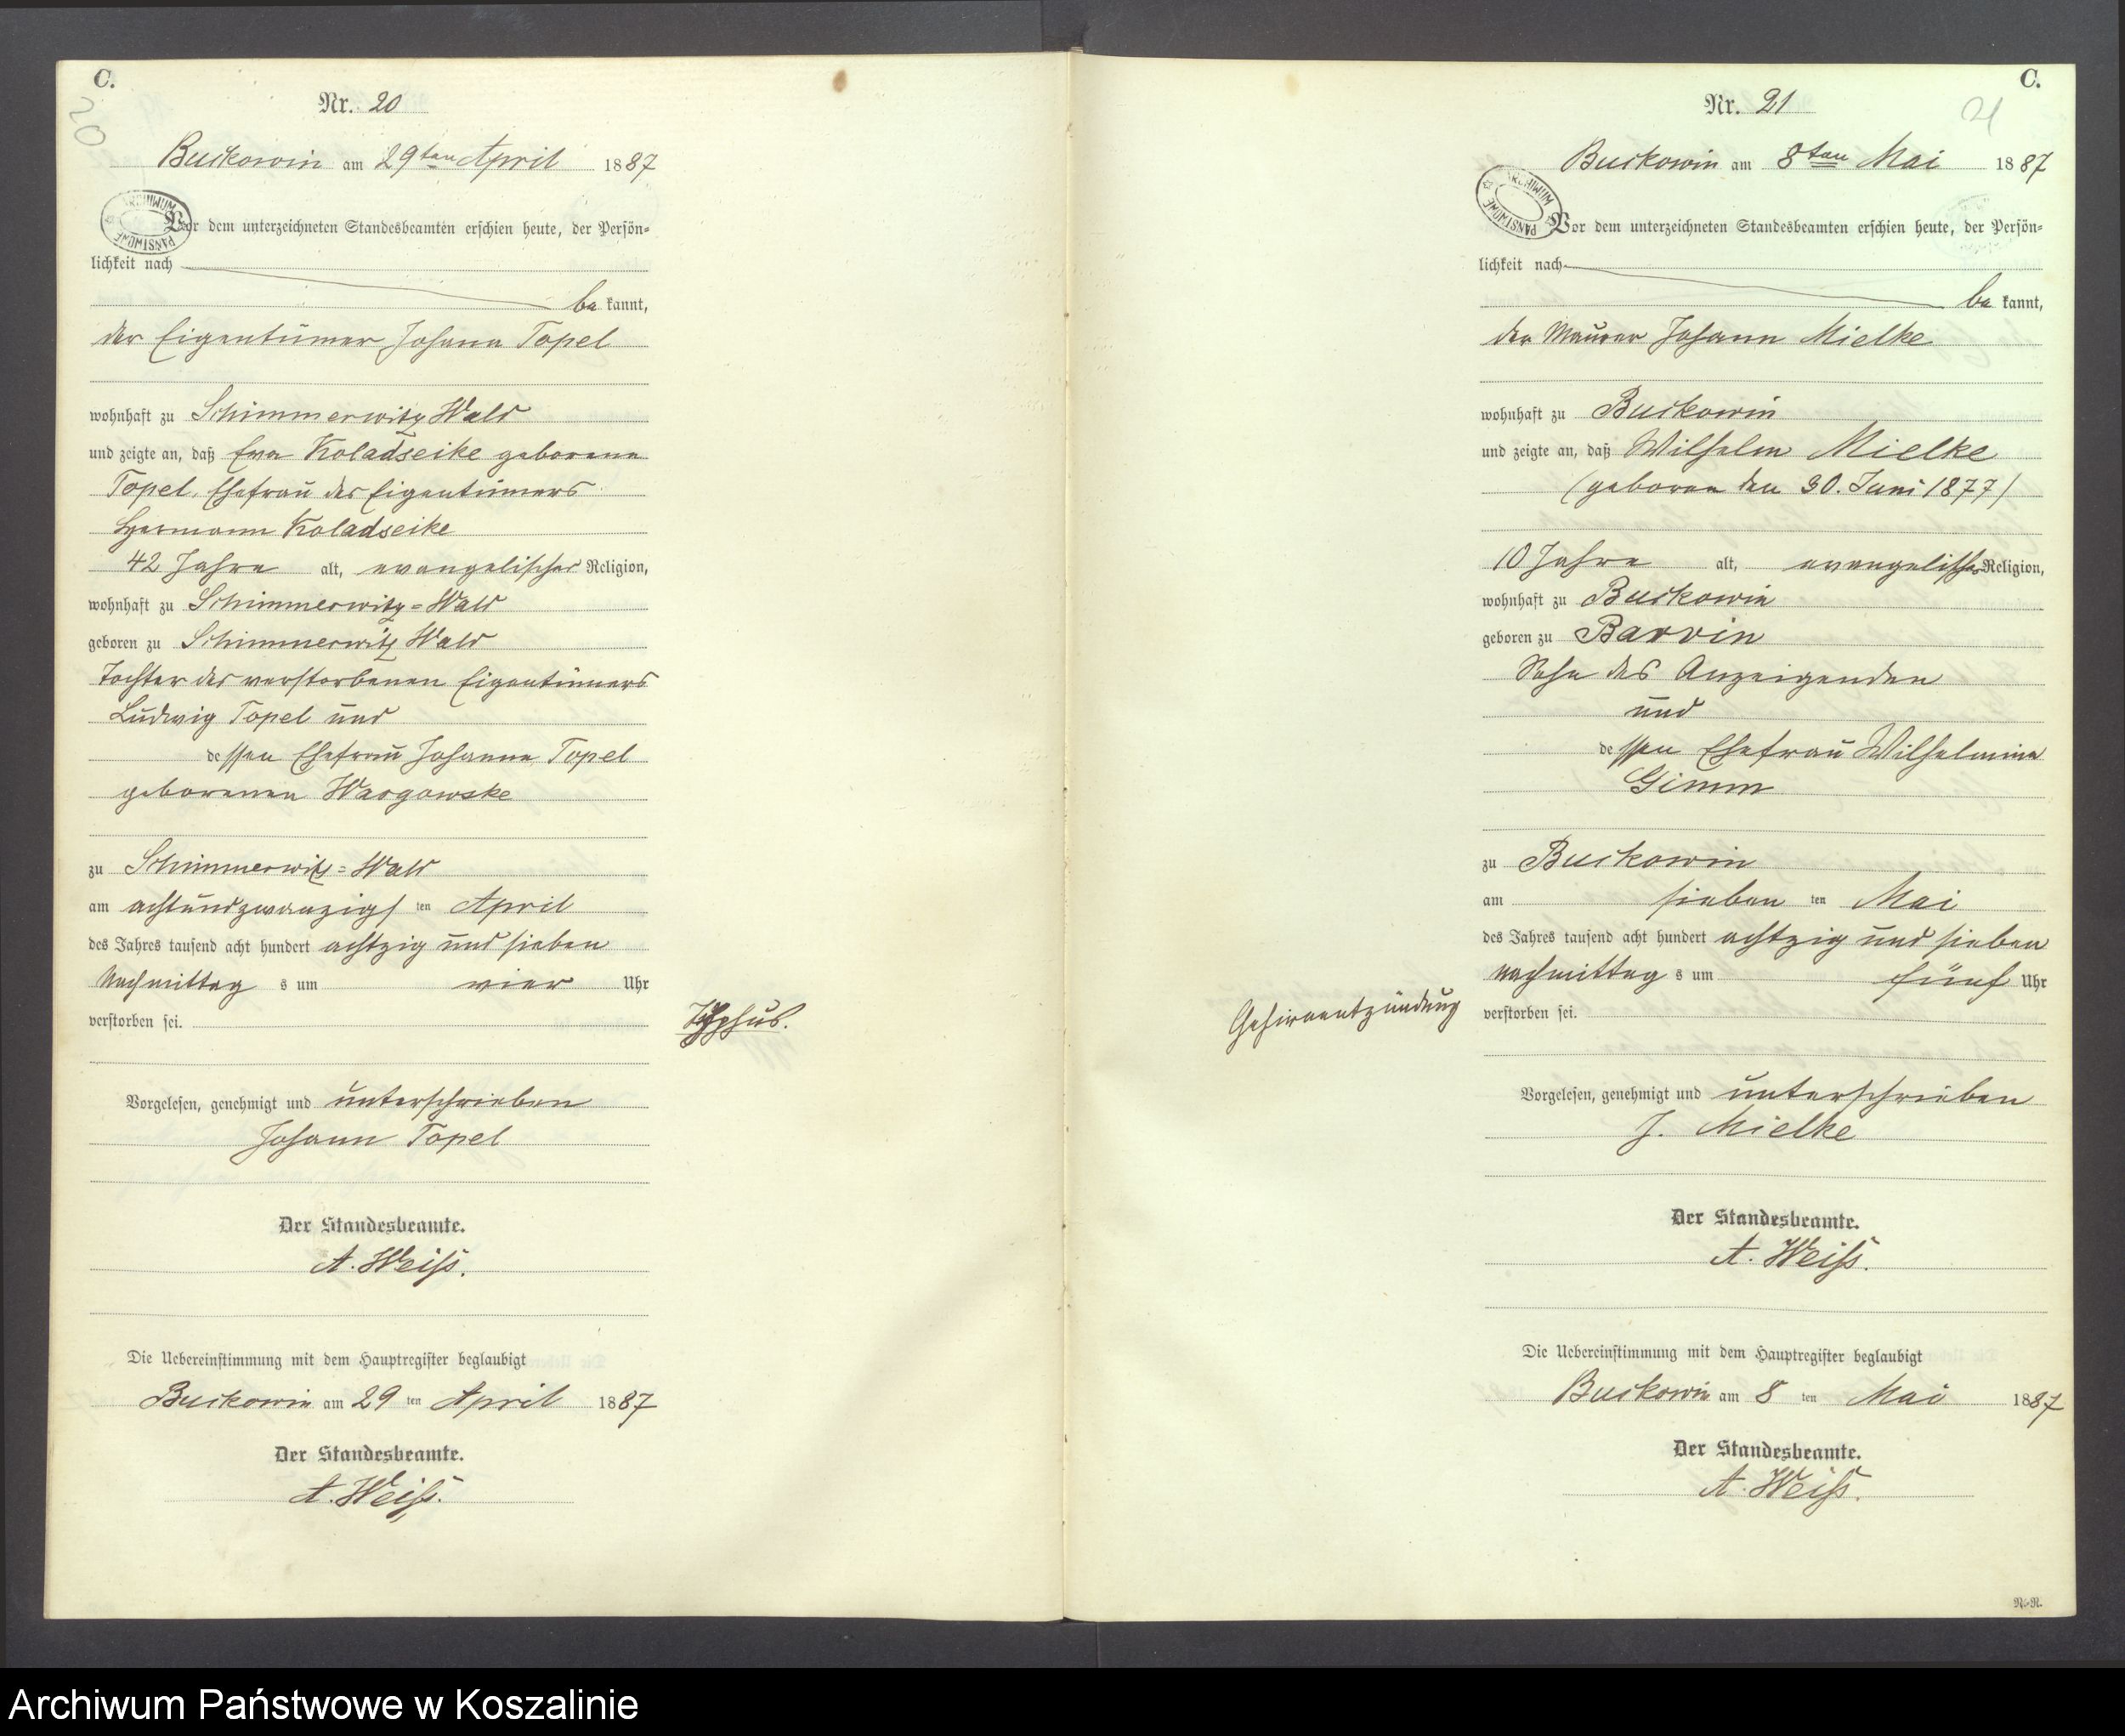 C.
20
Nr. 20
Buckowin am 29ten April 1887
ARCHIWUM PAŃSTWOWE
Vor dem unterzeichneten Standesbeamten erschien heute, der Persön-
lichkeit nach
be kannt,
der Eigentümer Johann Topel
wohnhaft zu Schimmerwitz Wald
und zeigte an, daß Eva Koladseike geborene
Topel, Ehefrau des Eigentümers
Hermann Koladseike
42 Jahre alt, evangelischer Religion,
wohnhaft zu Schimmerwitz-Wald
geboren zu Schimmerwitz Wald
Tochter des verstorbenen Eigentümers
Ludwig Topel und
dessen Ehefrau Johanna Topel
geborenen Wargowske
zu Schimmerwitz-Wald
am achtundzwanzigsten April
des Jahres tausend acht hundert achtzig und sieben
Nachmittags um vier Uhr
verstorben sei.
Typhus.
Vorgelesen, genehmigt und unterschrieben
Johann Topel
Der Standesbeamte.
A. Weiß.
Die Uebereinstimmung mit dem Hauptregister beglaubigt
Buckowin am 29ten April 1887
Der Standesbeamte.
A. Weiß.
C.
21
Nr. 21
Buckowin am 8ten Mai 1887
ARCHIWUM PAŃSTWOWE
Vor dem unterzeichneten Standesbeamten erschien heute, der Persön-
lichkeit nach
be kannt,
der Maurer Johann Mielke
wohnhaft zu Buckowin
und zeigte an, daß Wilhelm Mielke
(geboren den 30. Juni 1877)
10 Jahre alt, evangelischer Religion,
wohnhaft zu Buckowin
geboren zu Barvin
Sohn des Anzeigenden
und
dessen Ehefrau Wilhelmine
Gimm
zu Buckowin
am sieben ten Mai
des Jahres tausend acht hundert achtzig und sieben
nachmittags um fünf Uhr
Gehirnentzündung
verstorben sei.
Vorgelesen, genehmigt und unterschrieben
J. Mielke
Der Standesbeamte.
A. Weiß.
Die Uebereinstimmung mit dem Hauptregister beglaubigt
Buckowin am 8ten Mai 1887
Der Standesbeamte.
A. Weiß.
Archiwum Państwowe w Koszalinie